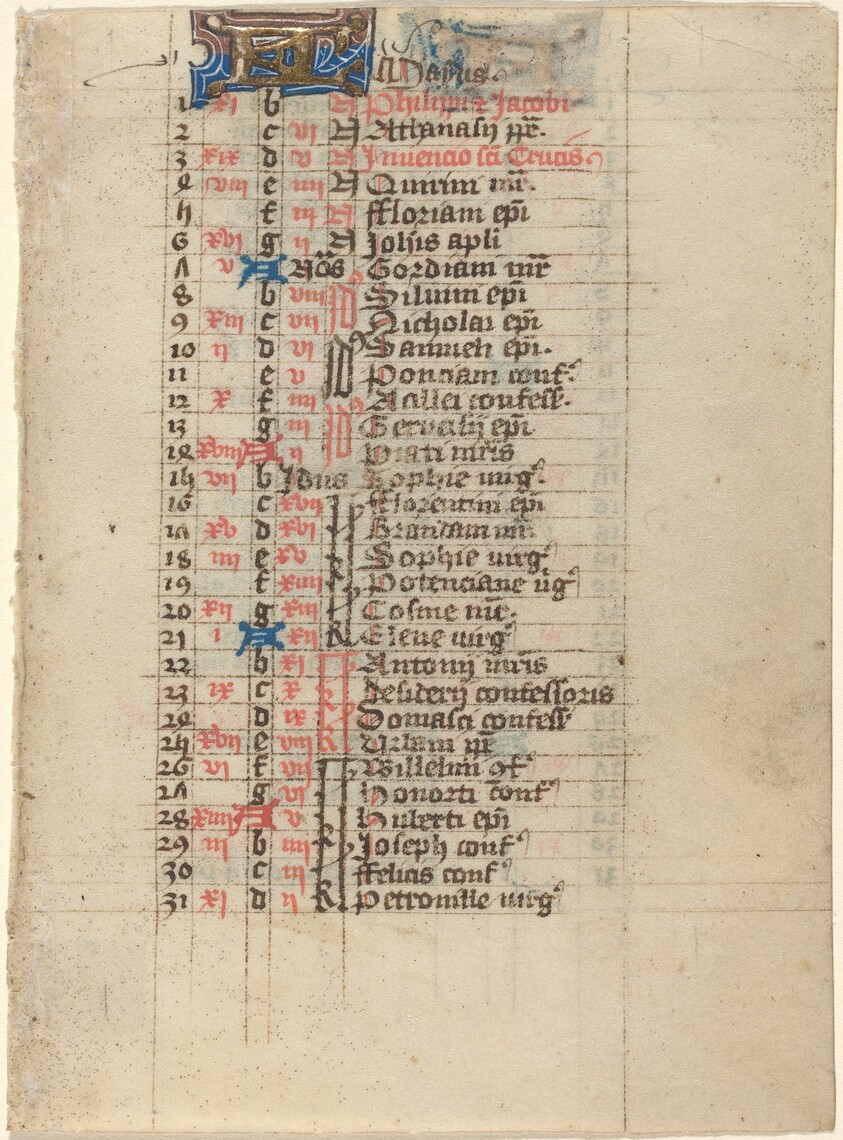 Mayus
1 xi b N Philippi et Jacobi
2 c vi N Athanasij pp̄e.
3 xix d v N Invencio sc̄i Crucis
4 viii e iiii N Quirini mr̄.
5 f iii N ffloriani ep̄i
6 xvi g ii N Joh̄is apli
7 v A Nōs Gordiani mr̄
8 b viii Siluini ep̄i
9 xiii c vii Nicholai ep̄i
10 ii d vi Samueli ep̄i.
11 e v Ponciani conf.
12 x f iiii Acillei confess.
13 g iii Gervasij ep̄i
14 xviii A ii mr̄is
15 vii b Idus Sophie virg
16 c xvii fflorentini ep̄i
17 xv d xvi Brandani mr̄.
18 iiii e xv Sophie virg
19 f xiiii Potenciane v̄g
20 xii g xiii Cosme mr̄.
21 i A xii R Elene virg
22 b xi Antonij mr̄is
23 ix c x Desiderij confessoris
24 d ix Domasci confess
25 xvii e viii R Urbani pp̄e
26 vi f vii Willelmi
27 g vi Honorti conf
28 xiiii A v Huberti ep̄i
29 iii b iiii Joseph conf
30 c iii ffelicis conf
31 xi d ii R Petronille virg